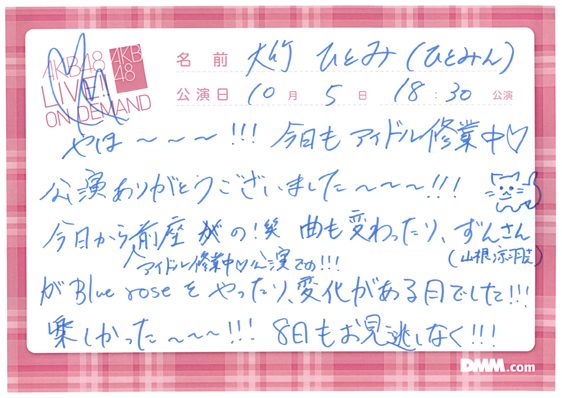 AKB48
LIVE!!
ON DEMAND
AKB
48
名前 大竹 ひとみ (ひとみん)
公演日 10月 5日 18:30 公演
やほ～～～!!! 今日もアイドル修業中♡
公演ありがとうございました～～～!!!
今日から前座 の!笑 曲も変わったり、ずんさん
アイドル修業中♡公演での!!!
(山根涼羽)
がBlue roseをやったり、変化がある日でした!!!
楽しかった～～～!!! 8日もお見逃しなく!!!
DMM.com